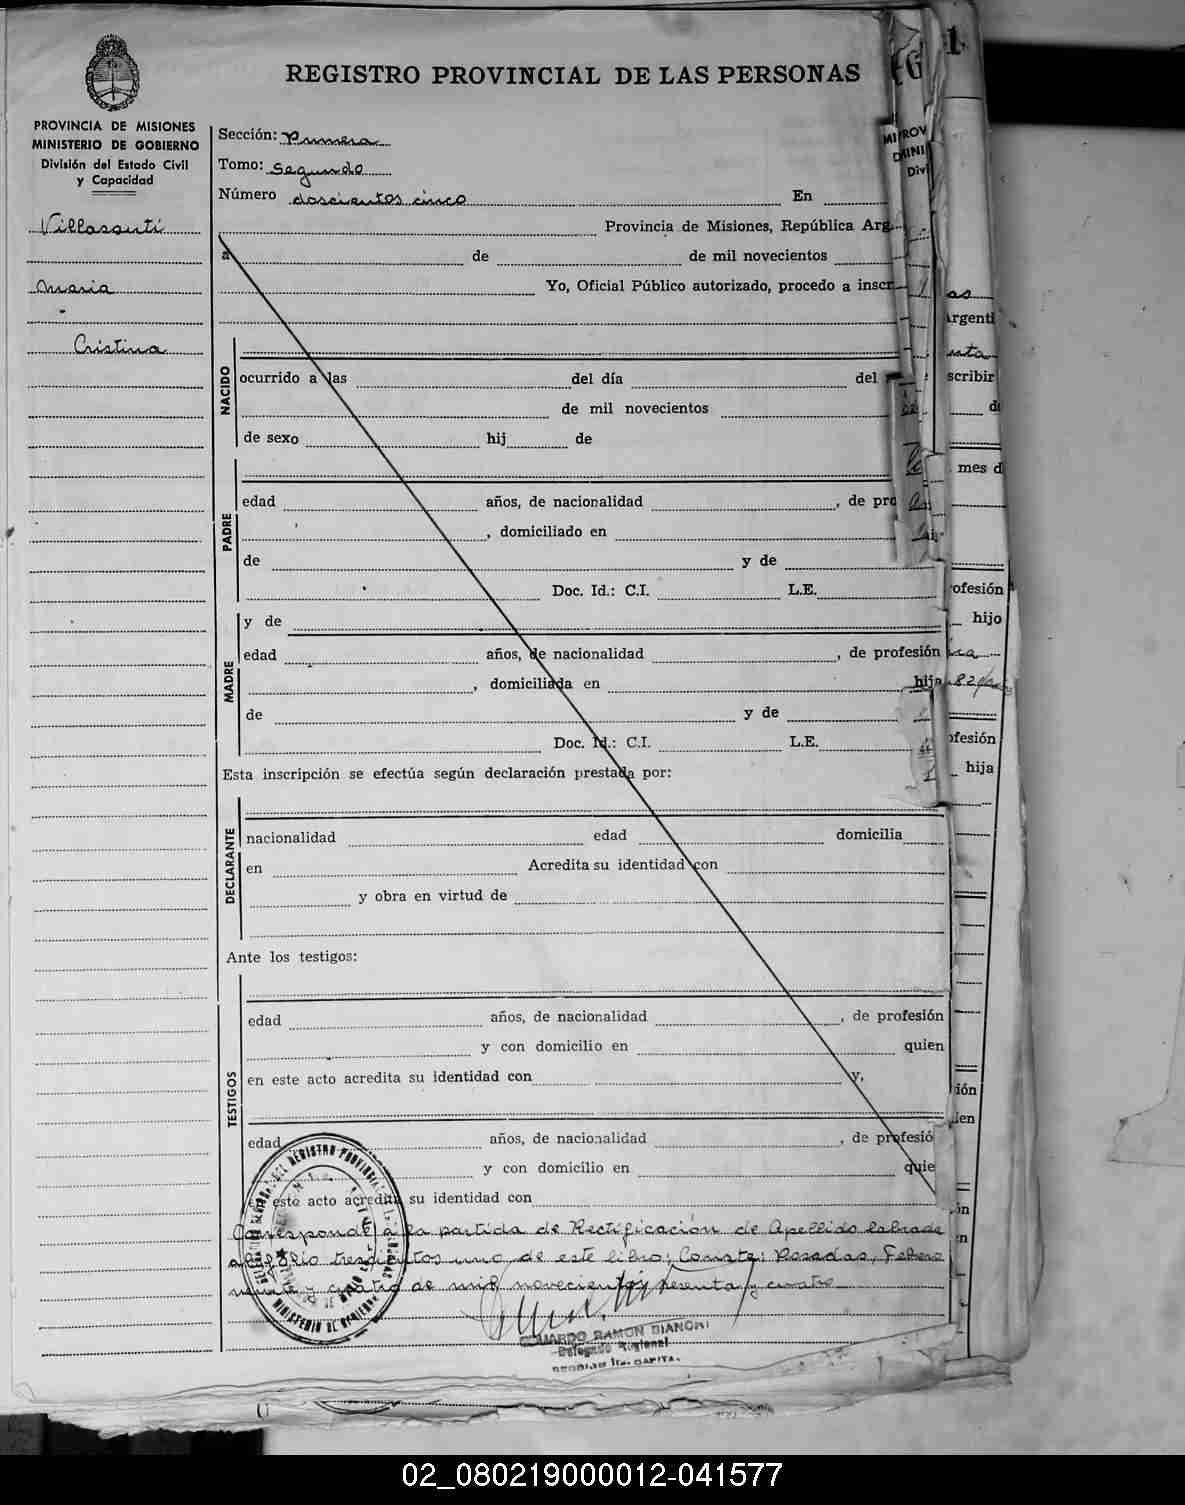 REGISTRO PROVINCIAL DE LAS PERSONAS
PROVINCIA DE MISIONES
MINISTERIO DE GOBIERNO
División del Estado Civil
y Capacidad
Villasanti
Maria
Cristina
Sección: Primera
Tomo: Segundo
Número doscientos cinco En
Provincia de Misiones, República Arg
de de mil novecientos
Yo, Oficial Público autorizado, procedo a inscr
NACIDO
ocurrido a las del día del
de mil novecientos
de sexo hij de
PADRE
edad años, de nacionalidad , de pro
, domiciliado en
de y de
Doc. Id.: C.I. L.E.
MADRE
y de
edad años, de nacionalidad , de profesión
, domiciliada en hija
de y de
Doc. Id.: C.I. L.E.
Esta inscripción se efectúa según declaración prestada por:
DECLARANTE
nacionalidad edad domicilia
en Acredita su identidad con
y obra en virtud de
Ante los testigos:
TESTIGOS
edad años, de nacionalidad , de profesión
y con domicilio en quien
en este acto acredita su identidad con y,
edad años, de nacionalidad , de profesió
y con domicilio en quie
este acto acredita su identidad con
Corresponde a la partida de Rectificación de Apellido labrada
al folio trescientos uno de este libro; Conste: Posadas, Febrero
veinte y cuatro de mil novecientos sesenta y cuatro
EDUARDO RAMON BIANCHI
Delegado Regional
Argenti
scribir
mes d
ofesión
hijo
82
ofesión
hija
ión
ien
02_080219000012-041577